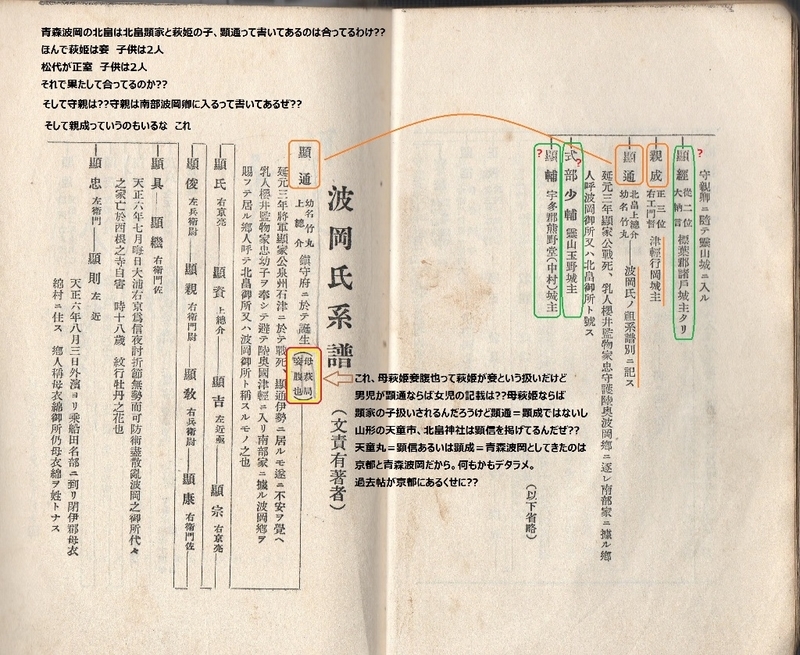 青森波岡の北畠は北畠顕家と萩姫の子、顕通って書いてあるのは合ってるわけ??
ほんで萩姫は妾 子供は2人
松代が正室 子供は2人
それで果たして合ってるのか??
そして守親は??守親は南部波岡卿に入るって書いてあるぜ??
そして親成っていうのもいるな これ
守親卿ニ隨テ靈山城ニ入ル
?
顯經 從二位 大納言 標葉郡請戶城主タリ
親成 正三位 右工門督 津輕行岡城主
顯通 北畠上總介 幼名竹丸 波岡氏ノ祖系譜別ニ記ス
延元三年顯家公戰死、乳人櫻井監物家忠守護陸奧波岡鄉ニ逐レ南部家ニ據ル鄉
人呼波岡御所又ハ北畠御所ト號ス
式部少輔 靈山玉野城主
?
顯輔 宇多郡熊野堂(中村)城主
?
(以下省略)
波岡氏系譜(文責有著者)
顯通 幼名竹丸 上總介 鎭守府ニ於テ誕生(母萩局妾腹也)
延元三年將軍顯家公泉州石津ニ於テ戰死、顯通伊勢ニ居ルモ遂ニ不安ヲ覺ヘ
乳人櫻井監物家忠幼子ヲ奉シテ遁テ陸奧國津輕ニ入リ南部家ニ據ル波岡鄉ヲ
賜フテ居ル鄉人呼テ北畠御所又ハ波岡御所ト稱スルモノ之也
顯氏 右京亮 顯資 上總介 顯吉 左近亟 顯宗 右京亮
顯俊 左兵衞尉 顯親 右衞門尉 顯敎 右兵衞尉 顯康 右衞門佐
顯具 顯繼 右衞門佐
天正六年七月晦日大浦右京爲信夜討折節無勢而可防術盡散亂波岡之御所代々
之家亡於西根之寺自害 時十八歲 紋行牡丹之花也
顯忠 左衞門 顯則 左近
天正六年八月三日外濱ヨリ乘船田名部ニ到リ閉伊郡母衣
綿村ニ住ス 鄉人稱母衣綿御所仍母衣綿ヲ姓トナス
これ、母萩姫妾腹也って萩姫が妾という扱いだけど
男児が顕通ならば女児の記載は??母萩姫ならば
顕家の子扱いされるんだろうけど顕通=顕成ではないし
山形の天童市、北畠神社は顕信を掲げてるんだぜ??
天童丸=顕信あるいは顕成=青森波岡としてきたのは
京都と青森波岡だから。何もかもデタラメ。
過去帖が京都にあるくせに??